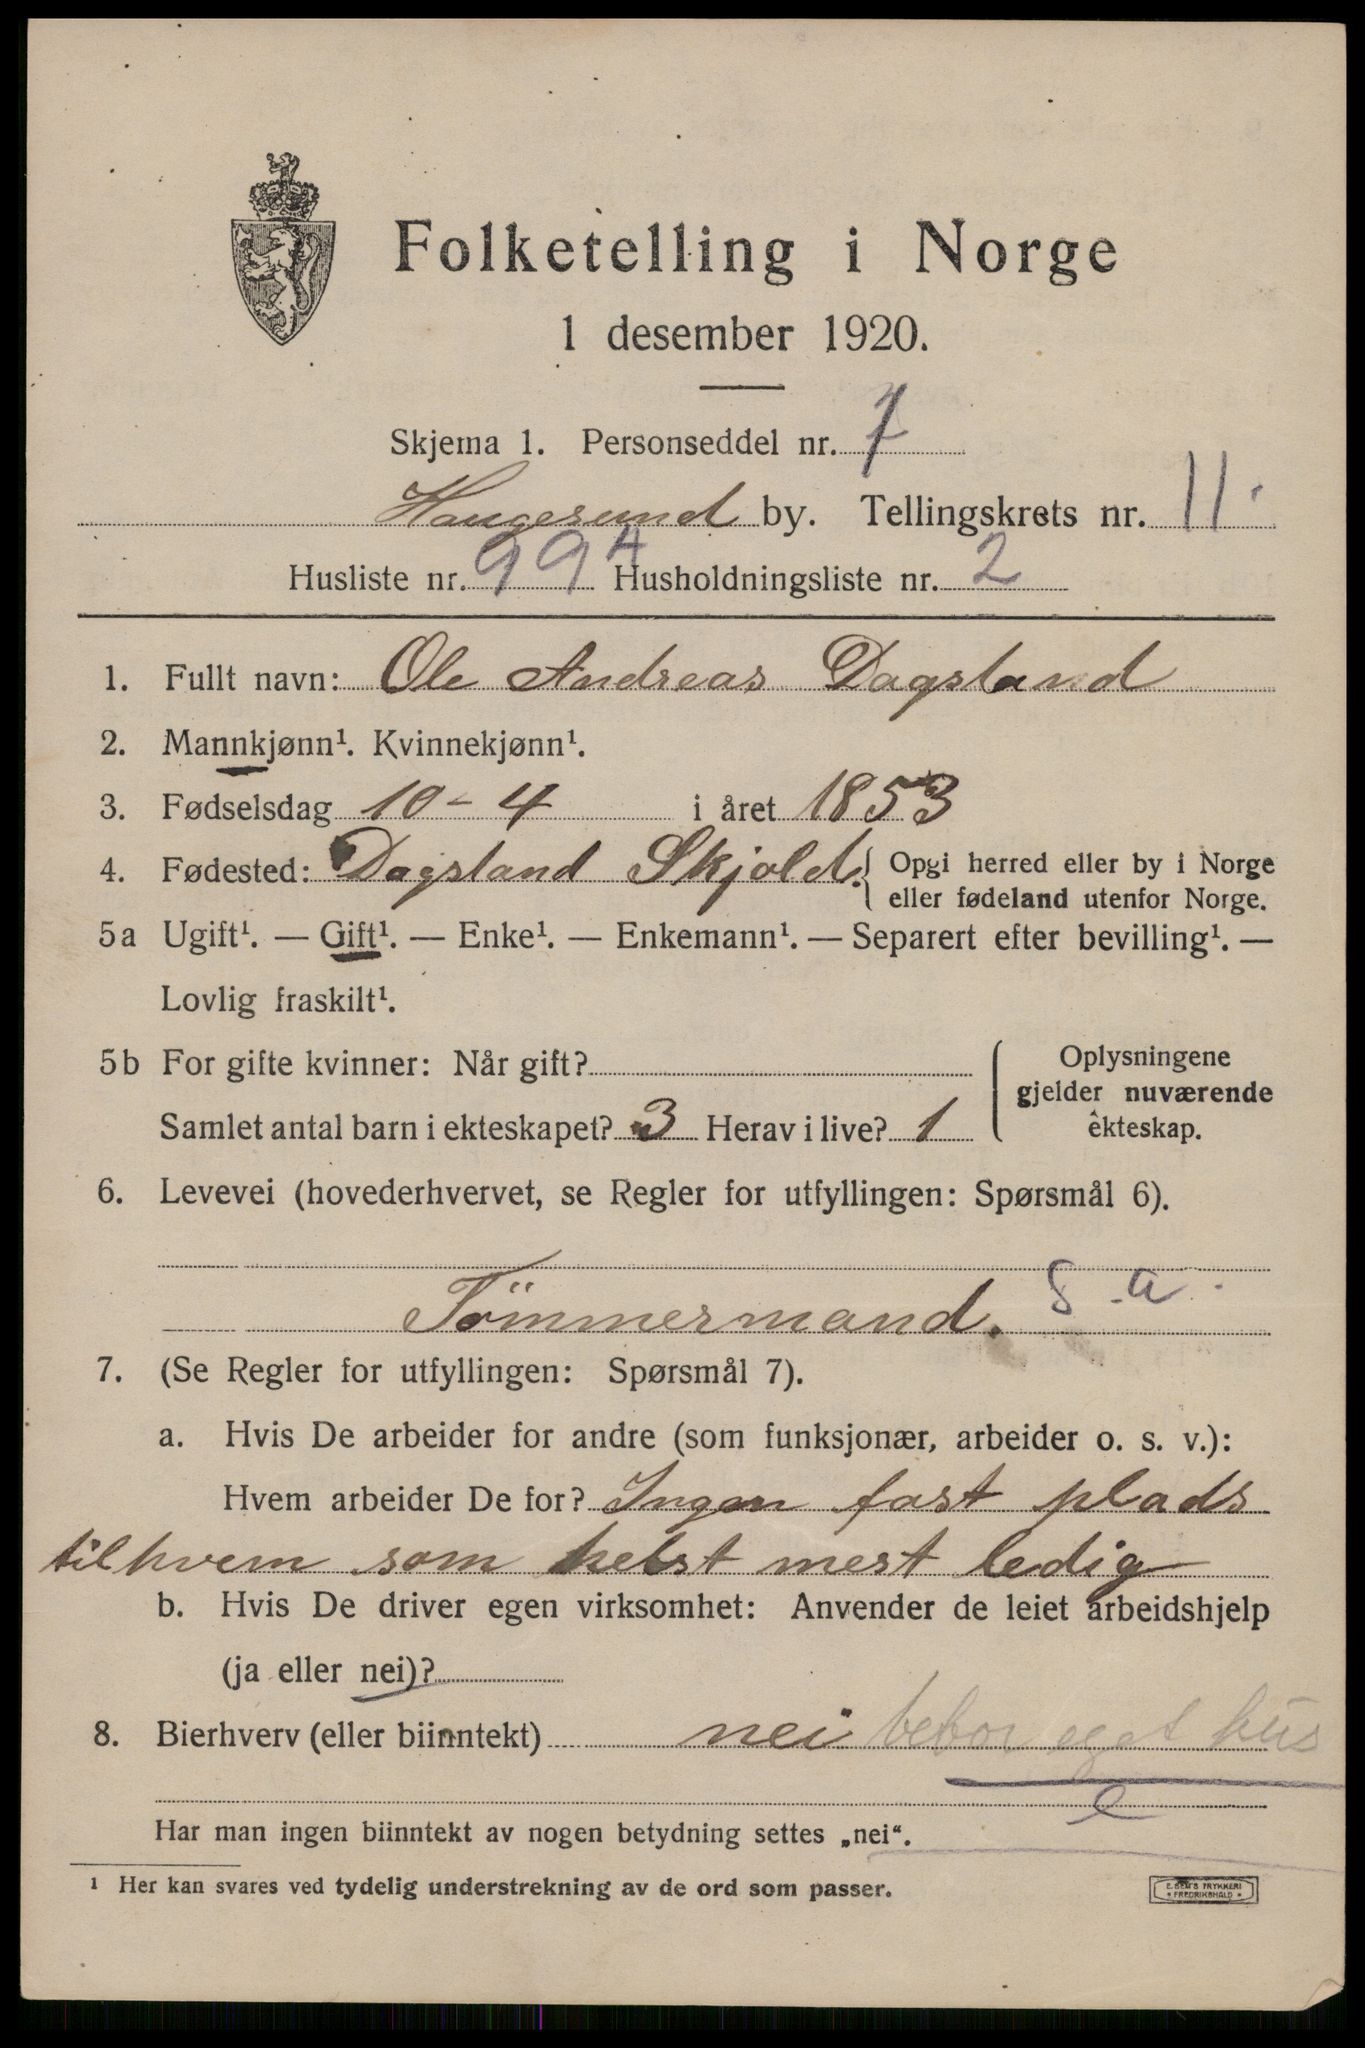 Folketelling i Norge
1 desember 1920.
Skjema 1. Personseddel nr. 7
Haugesund by. Tellingskrets nr. 11.
Husliste nr. 99A Husholdningsliste nr. 2
1. Fullt navn: Ole Andreas Dagsland
2. Mannkjønn¹. Kvinnekjønn¹.
3. Fødselsdag 10-4 i året 1853
4. Fødested: Dagsland Skjold. { Opgi herred eller by i Norge
eller fødeland utenfor Norge.
5a Ugift¹. — Gift¹. — Enke¹. — Enkemann¹. — Separert efter bevilling¹. —
Lovlig fraskilt¹.
5b For gifte kvinner: Når gift?
Samlet antal barn i ekteskapet? 3 Herav i live? 1
Oplysningene
gjelder nuværende
ekteskap.
6. Levevei (hovederhvervet, se Regler for utfyllingen: Spørsmål 6).
Tömmermand. 8 a.
7. (Se Regler for utfyllingen: Spørsmål 7).
a. Hvis De arbeider for andre (som funksjonær, arbeider o. s. v.):
Hvem arbeider De for? Ingen fast plads
til hvem som helst mest ledig
b. Hvis De driver egen virksomhet: Anvender de leiet arbeidshjelp
(ja eller nei)?
8. Bierhverv (eller biinntekt) nei bebor eget hus
e
Har man ingen biinntekt av nogen betydning settes „nei“.
¹ Her kan svares ved tydelig understrekning av de ord som passer.
E. SEM'S TRYKKERI
• FREDRIKSHALD •